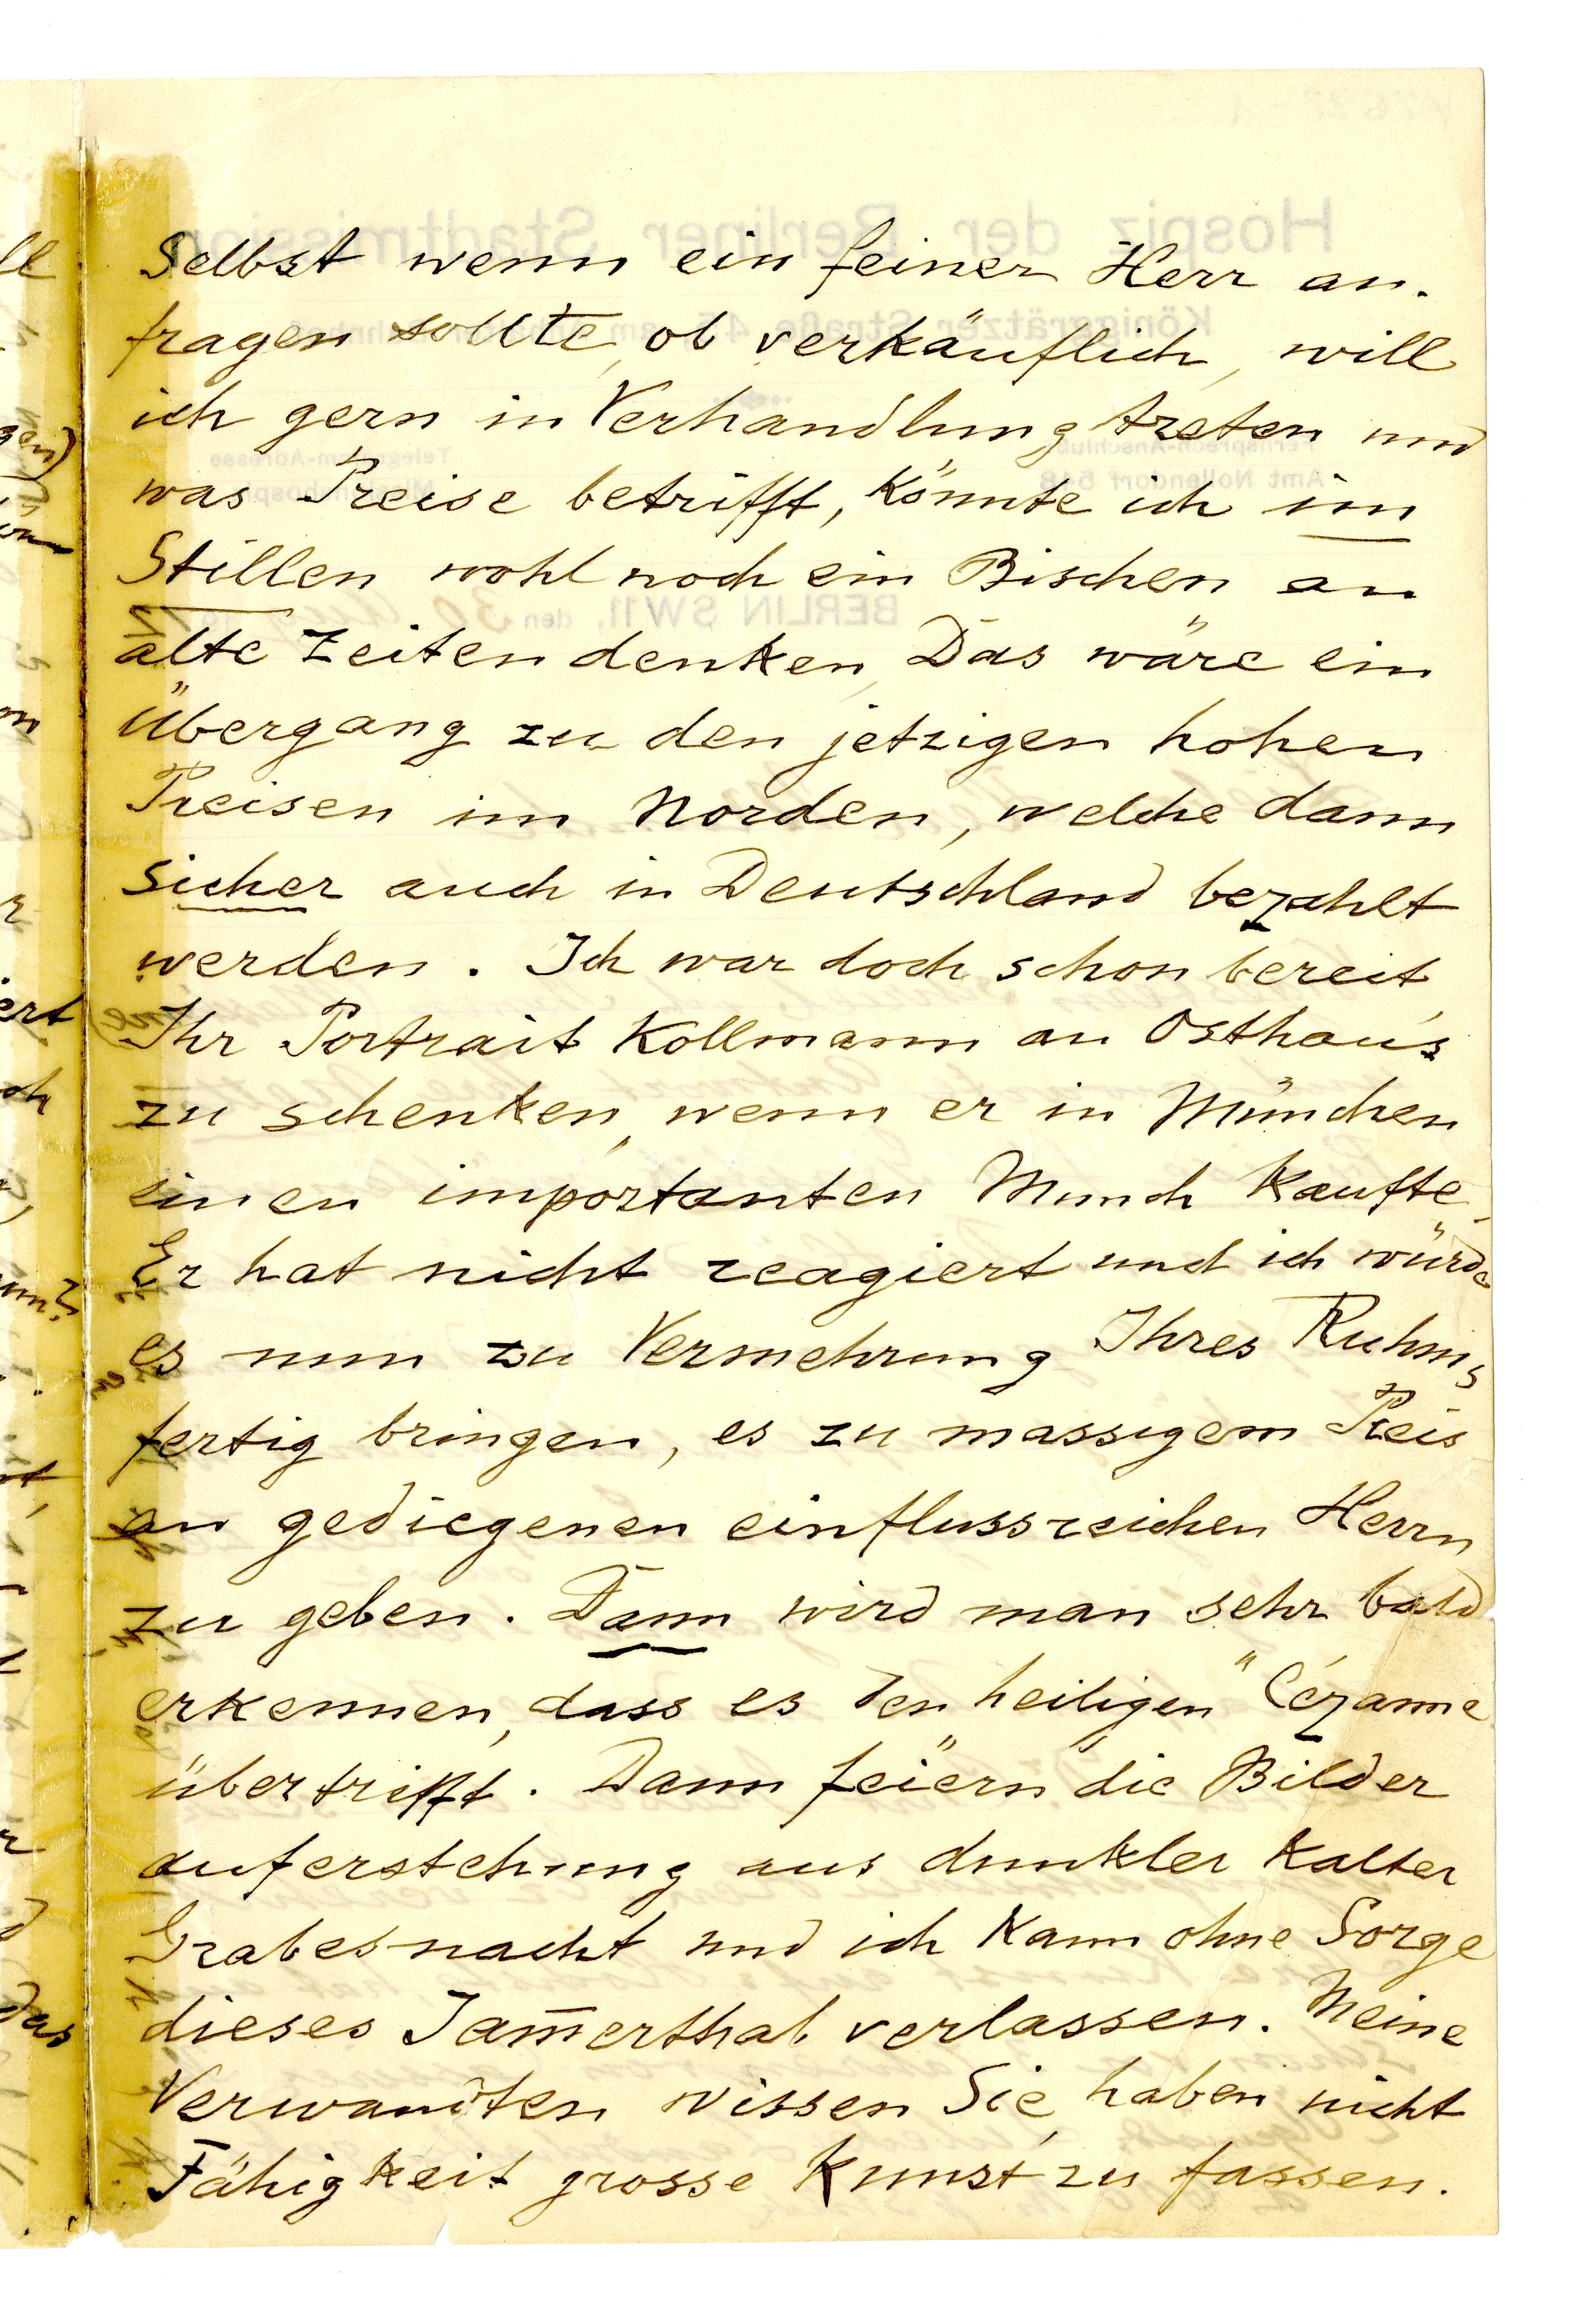 Selbst wenn ein feiner Herr an-
fragen sollte, ob verkäuflich, will
ich gern in Verhandlung treten und
was Preise betrifft, könnte ich im
Stillen wohl noch ein Bischen an
alte Zeiten denken, Das wäre ein
Übergang zu den jetzigen hohen
Preisen im Norden, welche dann
sicher auch in Deutschland bezahlt
werden. Ich war doch schon bereit
Ihr Portrait Kollmann an Osthaus
zu schenken, wenn er in München
einen importanten Munch kaufte.
Er hat nicht reagiert und ich würde
es nun zu Vermehrung Ihres Ruhms
fertig bringen, es zu massigem Preis
an gediegenen einflussreichen Herrn
zu geben. Dann wird man sehr bald
erkennen, dass es den heiligen" Cézanne
übertrifft. Dann feiern die Bilder
auferstehung aus dunkler kalter
Grabesnacht und ich kann ohne Sorge
dieses Jam̄erthal verlassen. Meine
Verwandten wissen Sie, haben nicht
Fähigkeit grosse Kunst zu fassen.